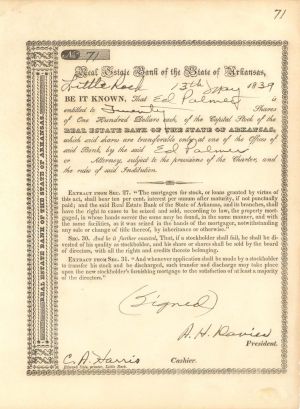 71
No. 71
Real Estate Bank of the State of Arkansas,
Little Rock 13th May 1839
BE IT KNOWN, That Ed Palmer is
entitled to Twenty Shares
of One Hundred Dollars each, of the Capital Stock of the
REAL ESTATE BANK OF THE STATE OF ARKANSAS,
which said shares are transferable only at one of the Offices of
said Bank by the said Ed Palmer
or Attorney, subject to the provisions of the Charter, and
the rules of said Institution.
EXTRACT FROM SEC. 27. "The mortgages for stock, or loans granted by virtue of
this act, shall bear ten per cent. interest per annum after maturity, if not punctually
paid; and the said Real Estate Bank of the State of Arkansas, and its branches, shall
have the right to cause to be seized and sold, according to law, the property mort-
gaged, in whose hands soever the same may be found, in the same manner, and with
the same facilities, as if it was in the hands of the mortgager, notwithstanding
any sale or change of title thereof, by inheritance or otherwise."
SEC. 30. And be it further enacted, That, if a stockholder shall fail, he shall be di-
vested of his quality as stockholder, and his share or shares shall be sold by the board
of directors, with all the rights and credits thereto belonging.
EXTRACT FROM SEC. 31. "And whenever application shall be made by a stockholder
to transfer his stock and be discharged, such transfer and discharge may take place
upon the new stockholder's furnishing mortgage to the satisfaction of at least a majority
of the directors."
(Signed)
A. H. Davies
President.
C. A. Harris Cashier.
Edward Cole, printer, Little Rock.